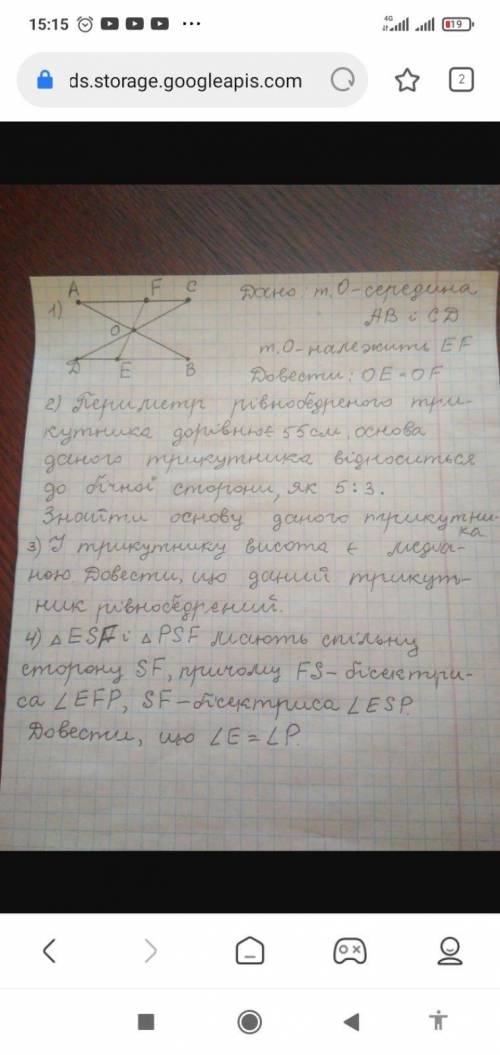 15:15
4G
19
ds.storage.googleapis.com
2
1)
A F C
O
D E B
Дано: т. О-середина
АВ і СD
т. О-належить EF
Довести: OE=OF
2) Периметр рівнобедреного три-
кутника дорівнює 55см, основа
даного трикутника відноситься
до бічної сторони, як 5:3.
Знайти основу даного трикутни-
ка
3) У трикутнику висота є медіа-
ною. Довести, що даний трикут-
ник рівнобедрений.
4) △ESF і △PSF мають спільну
сторону SF, причому FS-бісектри-
са ∠EFP, SF-бісектриса ∠ESP.
Довести, що ∠E=∠P.